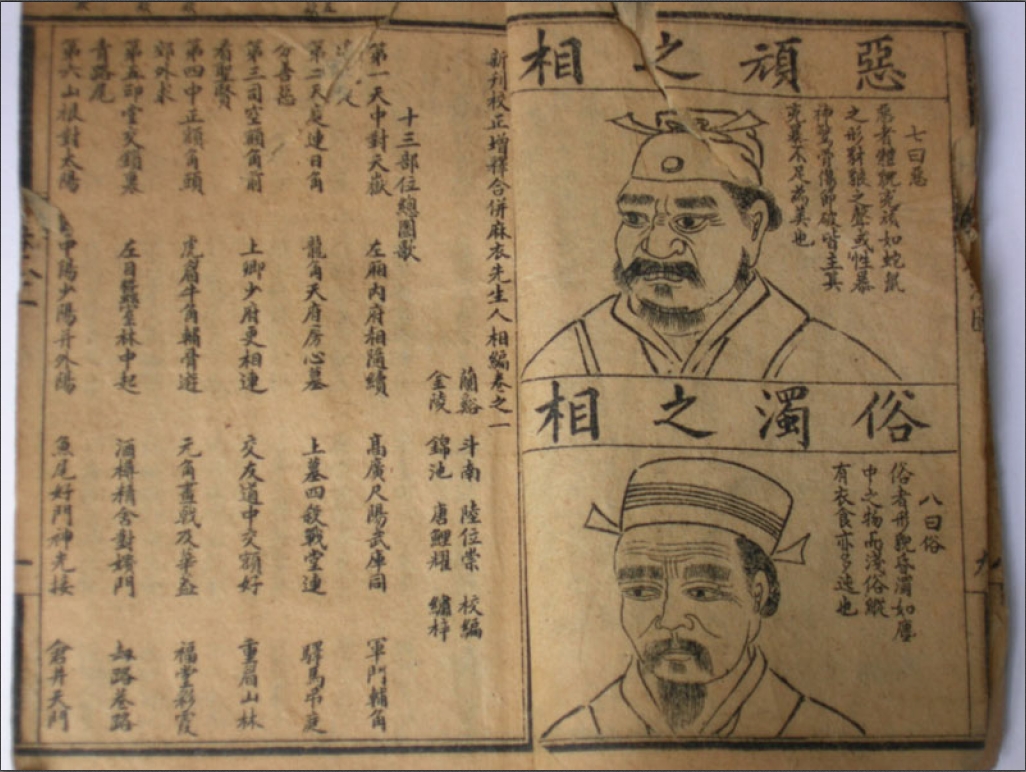 惡頑之相
七曰惡
惡者體貌兇頑如蛇鼠
之形豺狼之聲或性暴
神驚骨傷節破皆主其
兇暴不足為美也
俗濁之相
八曰俗
俗者形貌昏濁如塵
中之物而淺俗縱
有衣食亦多迍也
新刊校正增釋合併麻衣先生人相編卷之一
蘭谿 斗南 陸位崇 校編
金陵 錦池 唐鯉耀 繡梓
十三部位總圖歌
第一天中對天嶽 左廂內府相隨續 高廣尺陽武庫同 軍門輔角
第二天庭連日角 龍角天府房心墓 上墓四殺戰堂連 驛馬弔庭
分善惡
第三司空額角前 上卿少府更相連 交友道中交額好 重眉山林
看聖賢
第四中正額角頭 虎眉牛角輔骨遊 元角畫戟及華蓋 福堂彩霞
郊外求
第五印堂交鎖裏 左目蠶室林中起 酒樽精舍對嬪門 劫路巷路
青路尾
第六山根對太陽 中陽少陽并外陽 魚尾奸門神光接 倉井天門